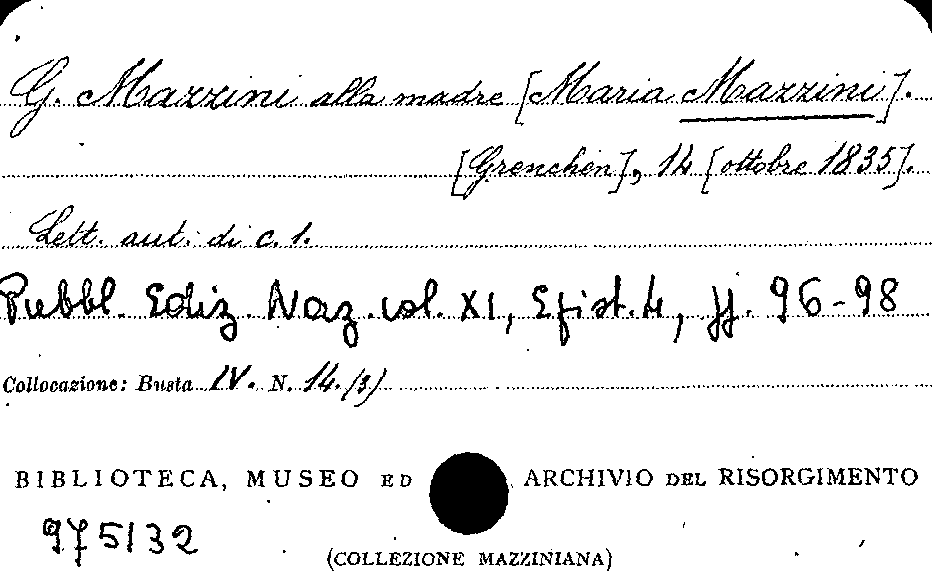 G. Mazzini alla madre [Maria Mazzini].
[Grenchen], 14 [ottobre 1835].
Lett. aut. di c. 1.
Pubbl. Ediz. Naz. vol. XI, Epist. 4, pp. 96-98
Collocazione: Busta IV. N. 14./3)
BIBLIOTECA, MUSEO ED ARCHIVIO DEL RISORGIMENTO
975132
(COLLEZIONE MAZZINIANA)